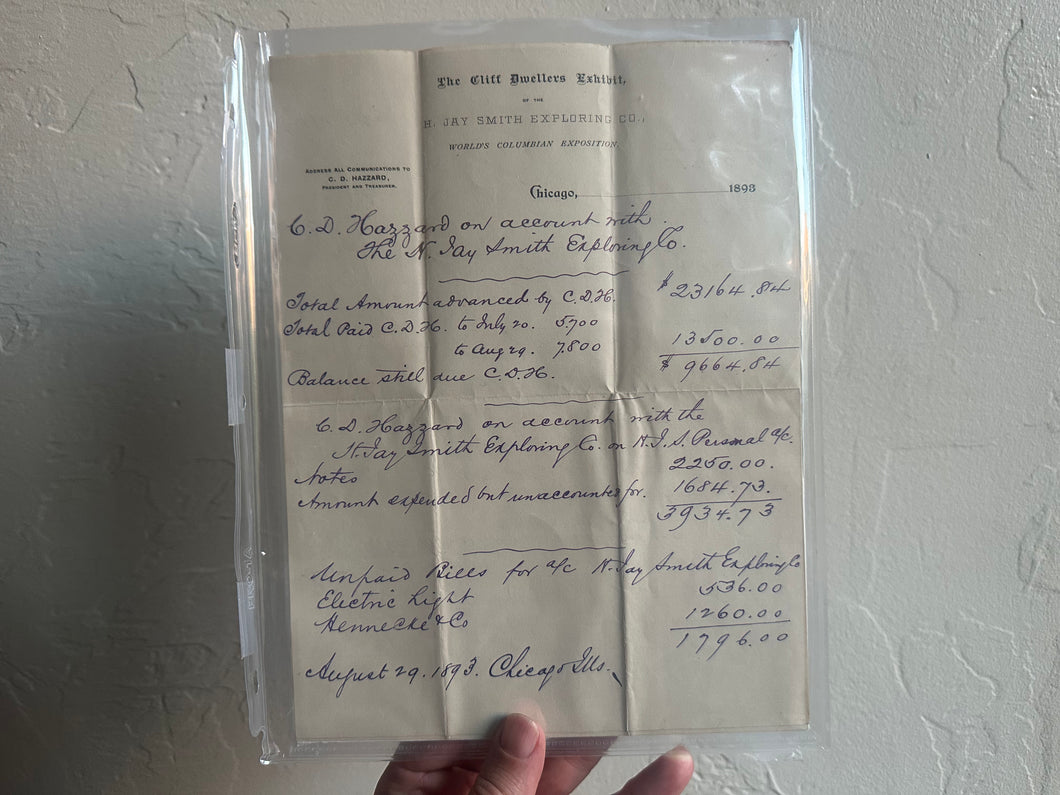 The Cliff Dwellers Exhibit,
OF THE
H. JAY SMITH EXPLORING CO.,
WORLD'S COLUMBIAN EXPOSITION.
ADDRESS ALL COMMUNICATIONS TO
C. D. HAZZARD,
PRESIDENT AND TREASURER.
Chicago, 1893
C. D. Hazzard on account with
The H. Jay Smith Exploring Co.
Total Amount advanced by C.D.H. $23164.84
Total Paid C.D.H. to July 20. 5700
to Aug 29. 7800 13500.00
Balance still due C.D.H. $9664.84
C. D. Hazzard on account with the
H. Jay Smith Exploring Co. on H.J.S. Personal a/c.
Notes 2250.00.
Amount expended but unaccounted for. 1684.73.
3934.73
Unpaid Bills for a/c H. Jay Smith Exploring Co
Electric Light 536.00
Hennecke & Co 1260.00
1796.00
August 29. 1893. Chicago Ills.